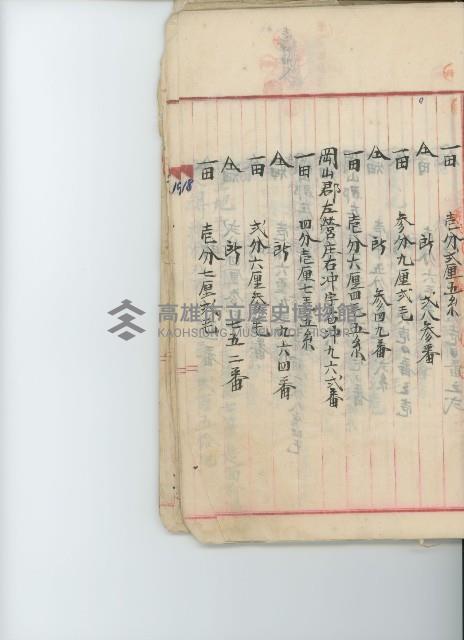 一田 壹分弍厘五糸
仝所 弍八参番
一田 参分九厘弍毛
仝所 参四九番
一田 壹分六厘四毛五糸
岡山郡左營庄右冲字右冲九六弍番
一田 四分壹厘七毛五糸
仝所 九六四番
一田 弍分六厘参毛
仝所 七五二番
一田 壹分七厘
1918
高雄市立歷史博物館
KAOHSIUNG MUSEUM OF HISTORY